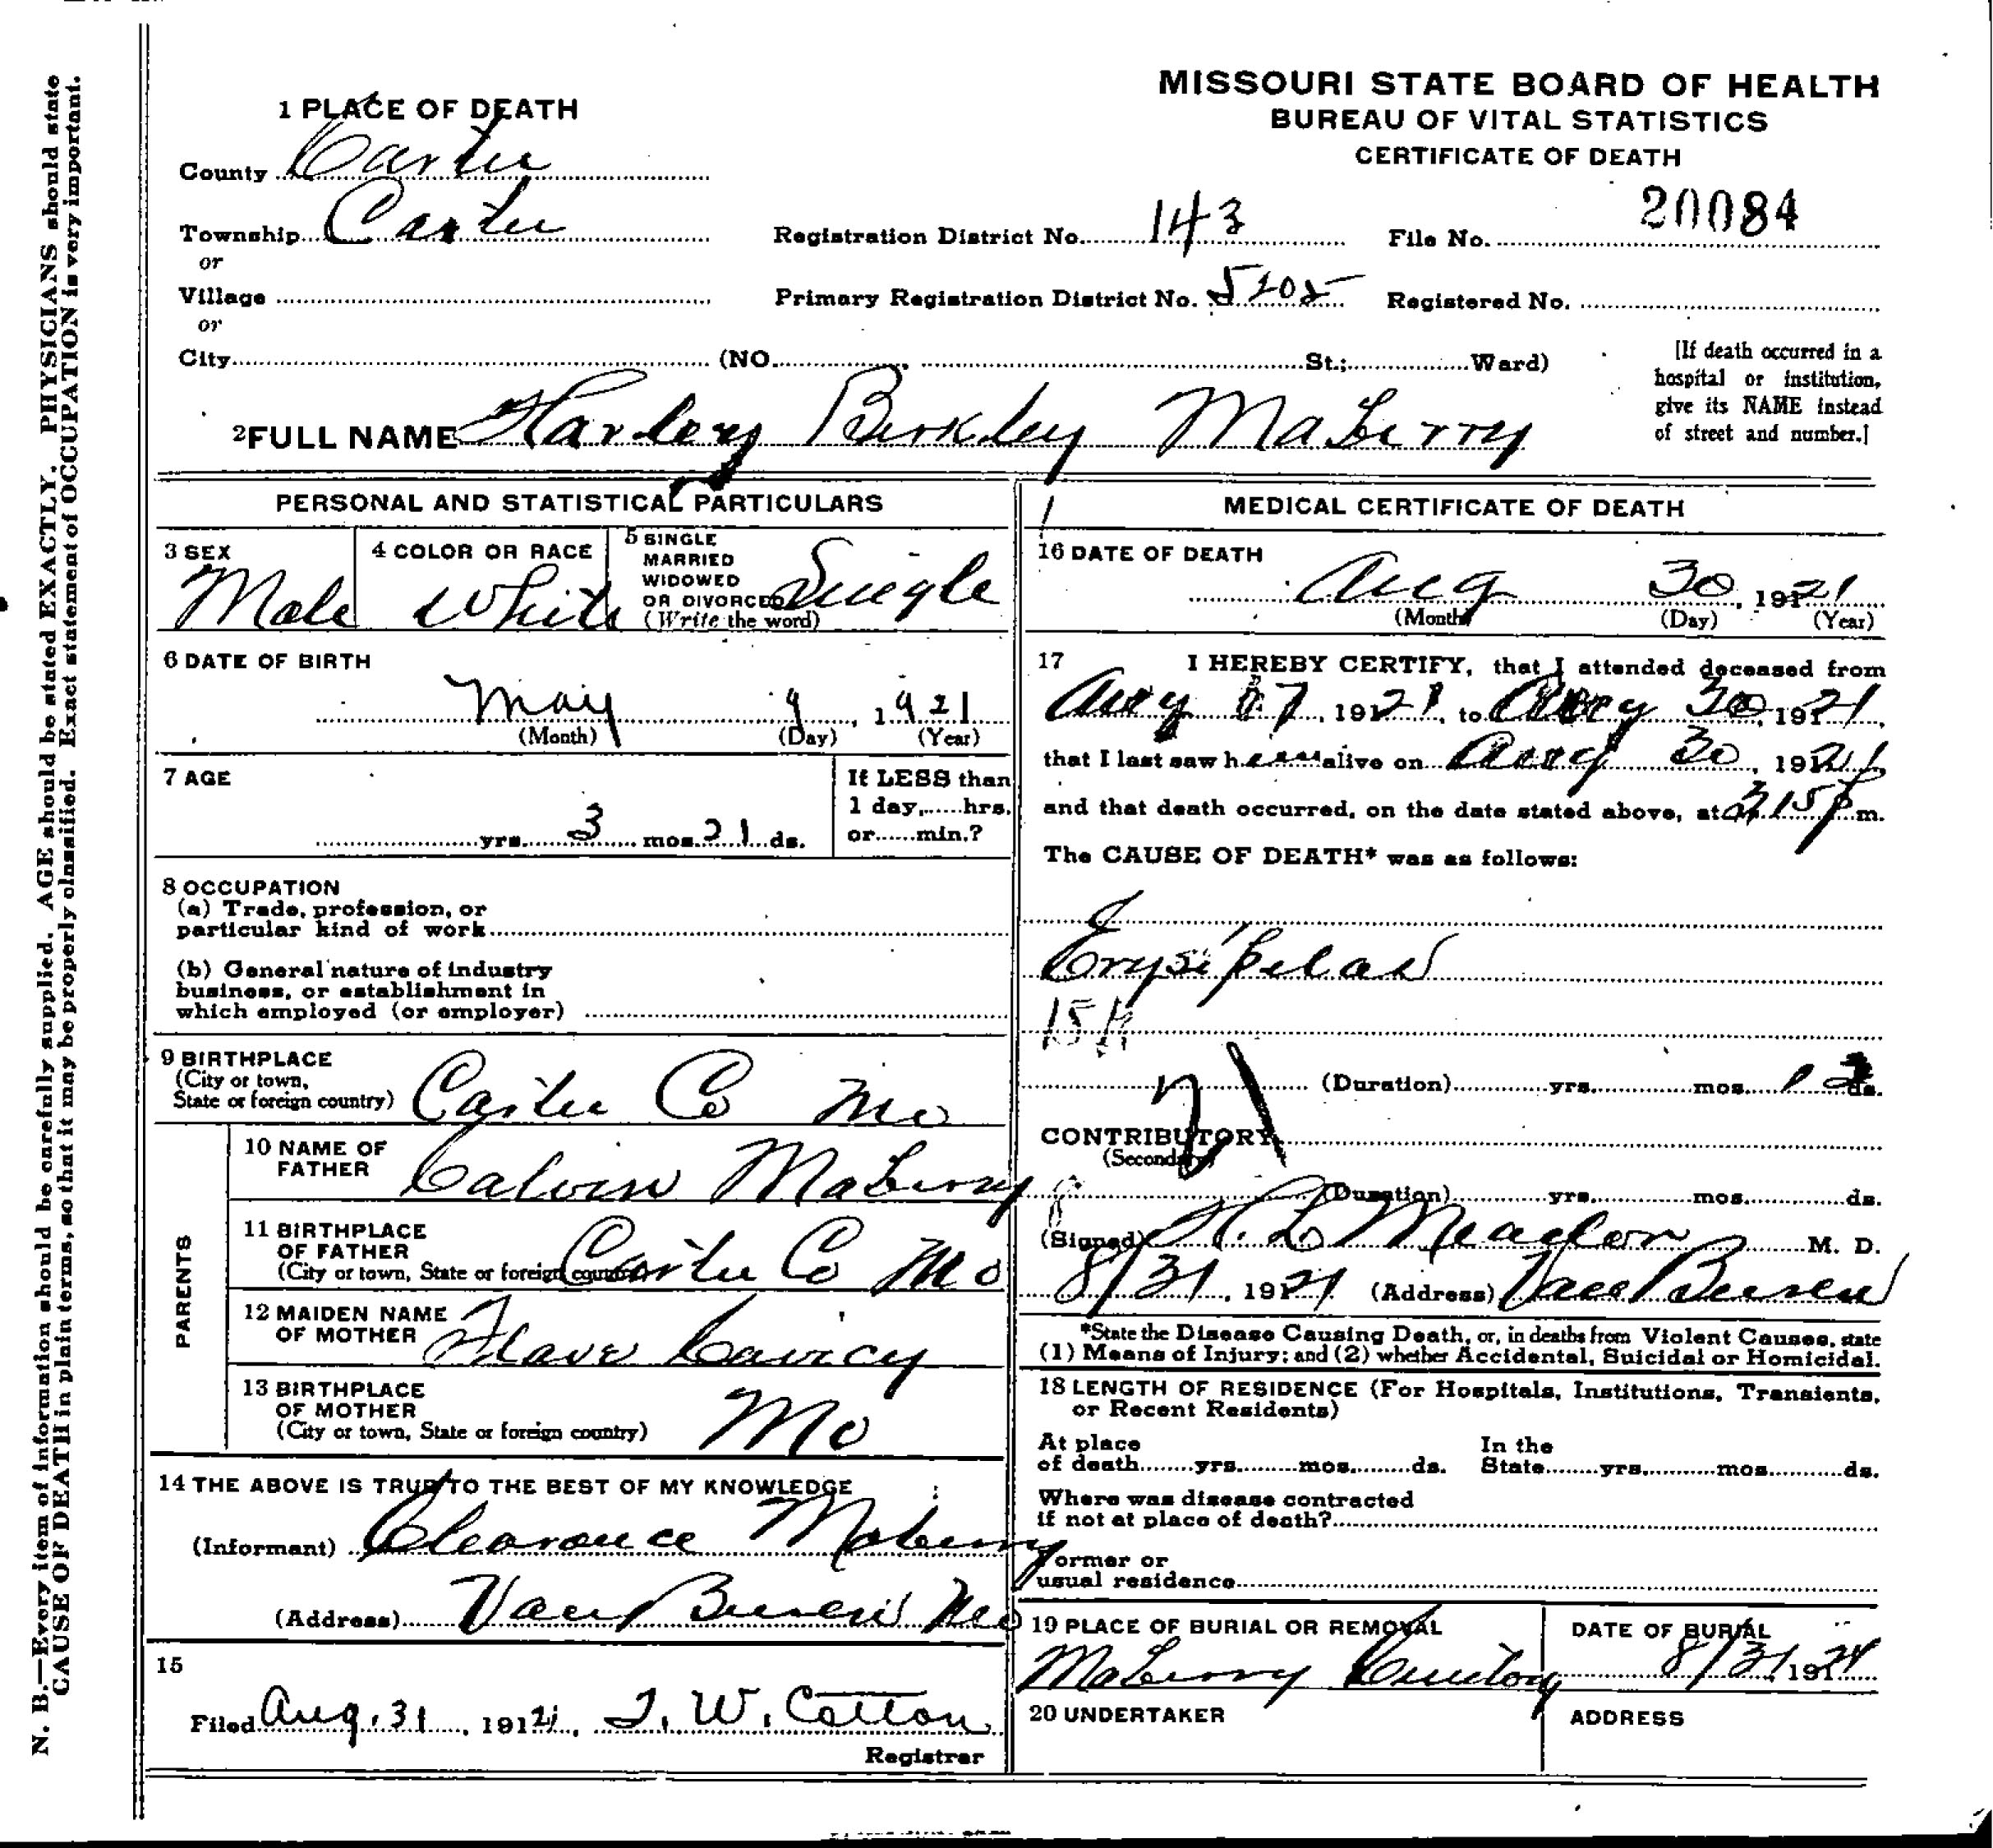 MISSOURI STATE BOARD OF HEALTH
BUREAU OF VITAL STATISTICS
CERTIFICATE OF DEATH
1 PLACE OF DEATH
County Carter
Township Carter
or
Village
or
City (NO. St.; Ward)
Registration District No. 143
File No. 20084
Primary Registration District No. 5205
Registered No.
[If death occurred in a
hospital or institution,
give its NAME instead
of street and number.]
2 FULL NAME Harley Berkley MaBerry
PERSONAL AND STATISTICAL PARTICULARS
3 SEX
Male
4 COLOR OR RACE
White
5 SINGLE
MARRIED
WIDOWED
OR DIVORCED
(Write the word)
Single
6 DATE OF BIRTH
May 9, 1921
(Month) (Day) (Year)
7 AGE
yrs. 3 mos. 21 ds.
If LESS than
1 day, hrs.
or min.?
8 OCCUPATION
(a) Trade, profession, or
particular kind of work
(b) General nature of industry
business, or establishment in
which employed (or employer)
9 BIRTHPLACE
(City or town,
State or foreign country)
Carter Co Mo
PARENTS
10 NAME OF
FATHER
Calvin MaBerry
11 BIRTHPLACE
OF FATHER
(City or town, State or foreign country)
Carter Co Mo
12 MAIDEN NAME
OF MOTHER
13 BIRTHPLACE
OF MOTHER
(City or town, State or foreign country)
Mo
14 THE ABOVE IS TRUE TO THE BEST OF MY KNOWLEDGE
(Informant) Clearance Maberry
(Address) Van Buren Mo
15
Filed Aug. 31, 1921, T. W. Cotton
Registrar
MEDICAL CERTIFICATE OF DEATH
16 DATE OF DEATH
Aug 30, 1921
(Month) (Day) (Year)
17 I HEREBY CERTIFY, that I attended deceased from
Aug 1921, to Aug 30, 1921,
that I last saw him alive on Aug 30, 1921
and that death occurred, on the date stated above, at 15 P m.
The CAUSE OF DEATH* was as follows:
Erysipelas
(Duration) yrs. mos. ds.
CONTRIBUTORY
(Secondary)
(Duration) yrs. mos. ds.
(Signed) Meador M. D.
8/31, 1921 (Address) Van Buren
*State the Disease Causing Death, or, in deaths from Violent Causes, state
(1) Means of Injury; and (2) whether Accidental, Suicidal or Homicidal.
18 LENGTH OF RESIDENCE (For Hospitals, Institutions, Transients,
or Recent Residents)
At place
of death yrs. mos. ds.
In the
State yrs. mos. ds.
Where was disease contracted
if not at place of death?
Former or
usual residence
19 PLACE OF BURIAL OR REMOVAL
MaBerry Cemetery
DATE OF BURIAL
8/31 19
20 UNDERTAKER
ADDRESS
N. B.—Every item of information should be carefully supplied. AGE should be stated EXACTLY. PHYSICIANS should state
CAUSE OF DEATH in plain terms, so that it may be properly classified. Exact statement of OCCUPATION is very important.